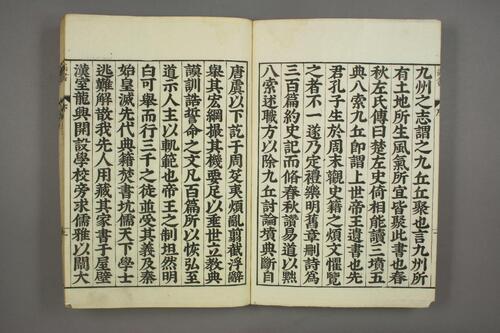 九州之志謂之九丘丘聚也言九州所
有土地所生風氣所宜皆聚此書也春
秋左氏傳曰楚左史倚相能讀三墳五
典八索九丘即謂上世帝王遺書也先
君孔子生於周末觀史籍之煩文懼覽
之者不一遂乃定禮樂明舊章刪詩爲
三百篇約史記而脩春秋讚易道以黜
八索述職方以除九丘討論墳典斷自
唐虞以下訖于周芟夷煩亂翦截浮辭
舉其宏綱撮其機要足以垂世立教典
謨訓誥誓命之文凡百篇所以恢弘至
道示人主以軌範也帝王之制坦然明
白可舉而行三千之徒並受其義及秦
始皇滅先代典籍焚書坑儒天下學士
逃難解散我先人用藏其家書于屋壁
漢室龍興開設學校旁求儒雅以闡大